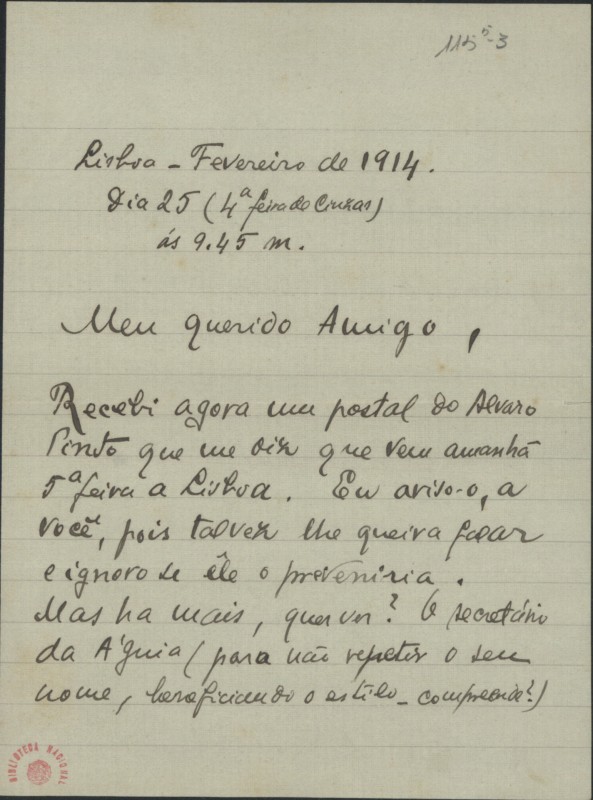 115⁵-3
Lisboa - Fevereiro de 1914.
Dia 25 (4ª feira de Cinzas)
ás 9.45 m.
Meu querido Amigo,
Recebi agora um postal do Alvaro
Pinto que me diz que vem amanhã
5ª feira a Lisboa. Eu aviso-o, a
você, pois talvez lhe queira falar
e ignoro se êle o preveniria.
Mas ha mais, quer ver? O secretário
da Águia (para não repetir o seu
nome, beneficiando o estilo - compreende?)
BIBLIOTECA NACIONAL